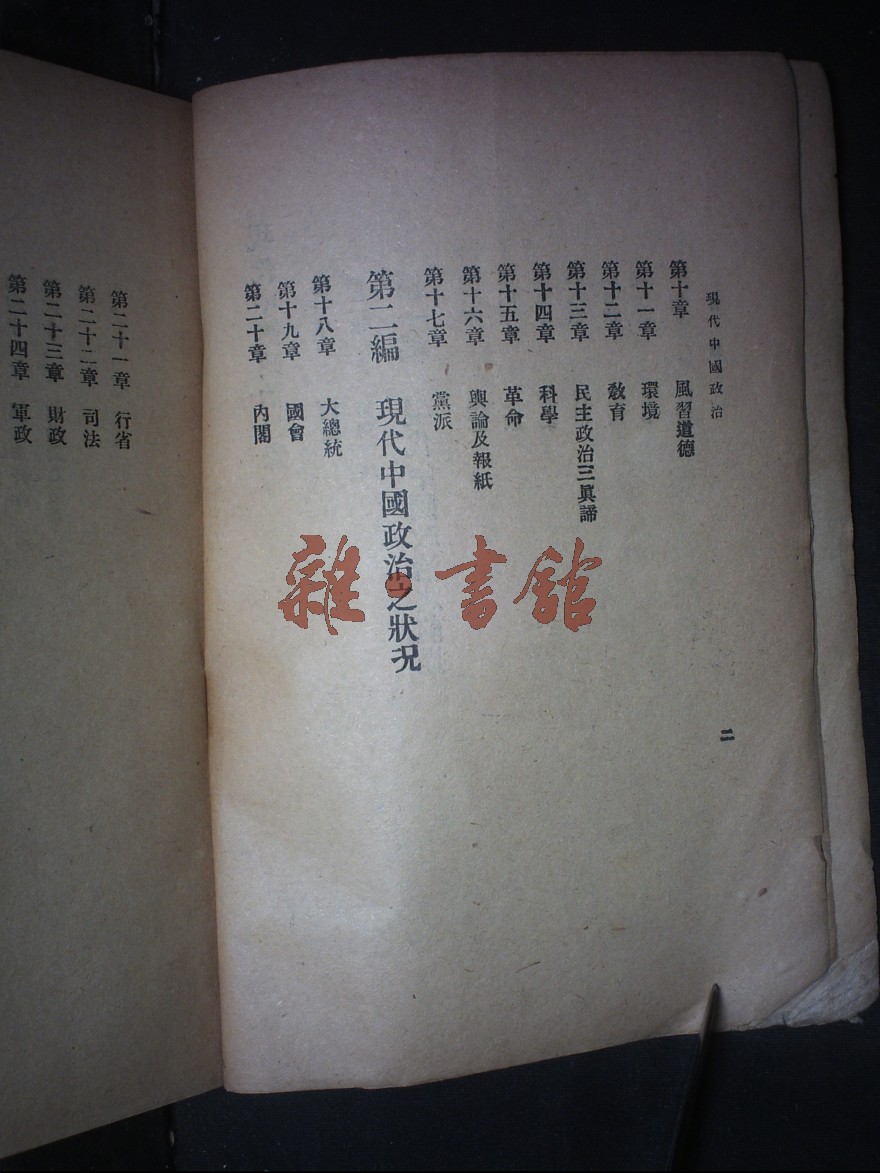 現代中國政治
第十章 風習道德
第十一章 環境
第十二章 敎育
第十三章 民主政治三眞諦
第十四章 科學
第十五章 革命
第十六章 輿論及報紙
第十七章 黨派
第二編 現代中國政治之狀況
第十八章 大總統
第十九章 國會
第二十章 內閣
二
第二十一章 行省
第二十二章 司法
第二十三章 財政
第二十四章 軍政
雜·書館